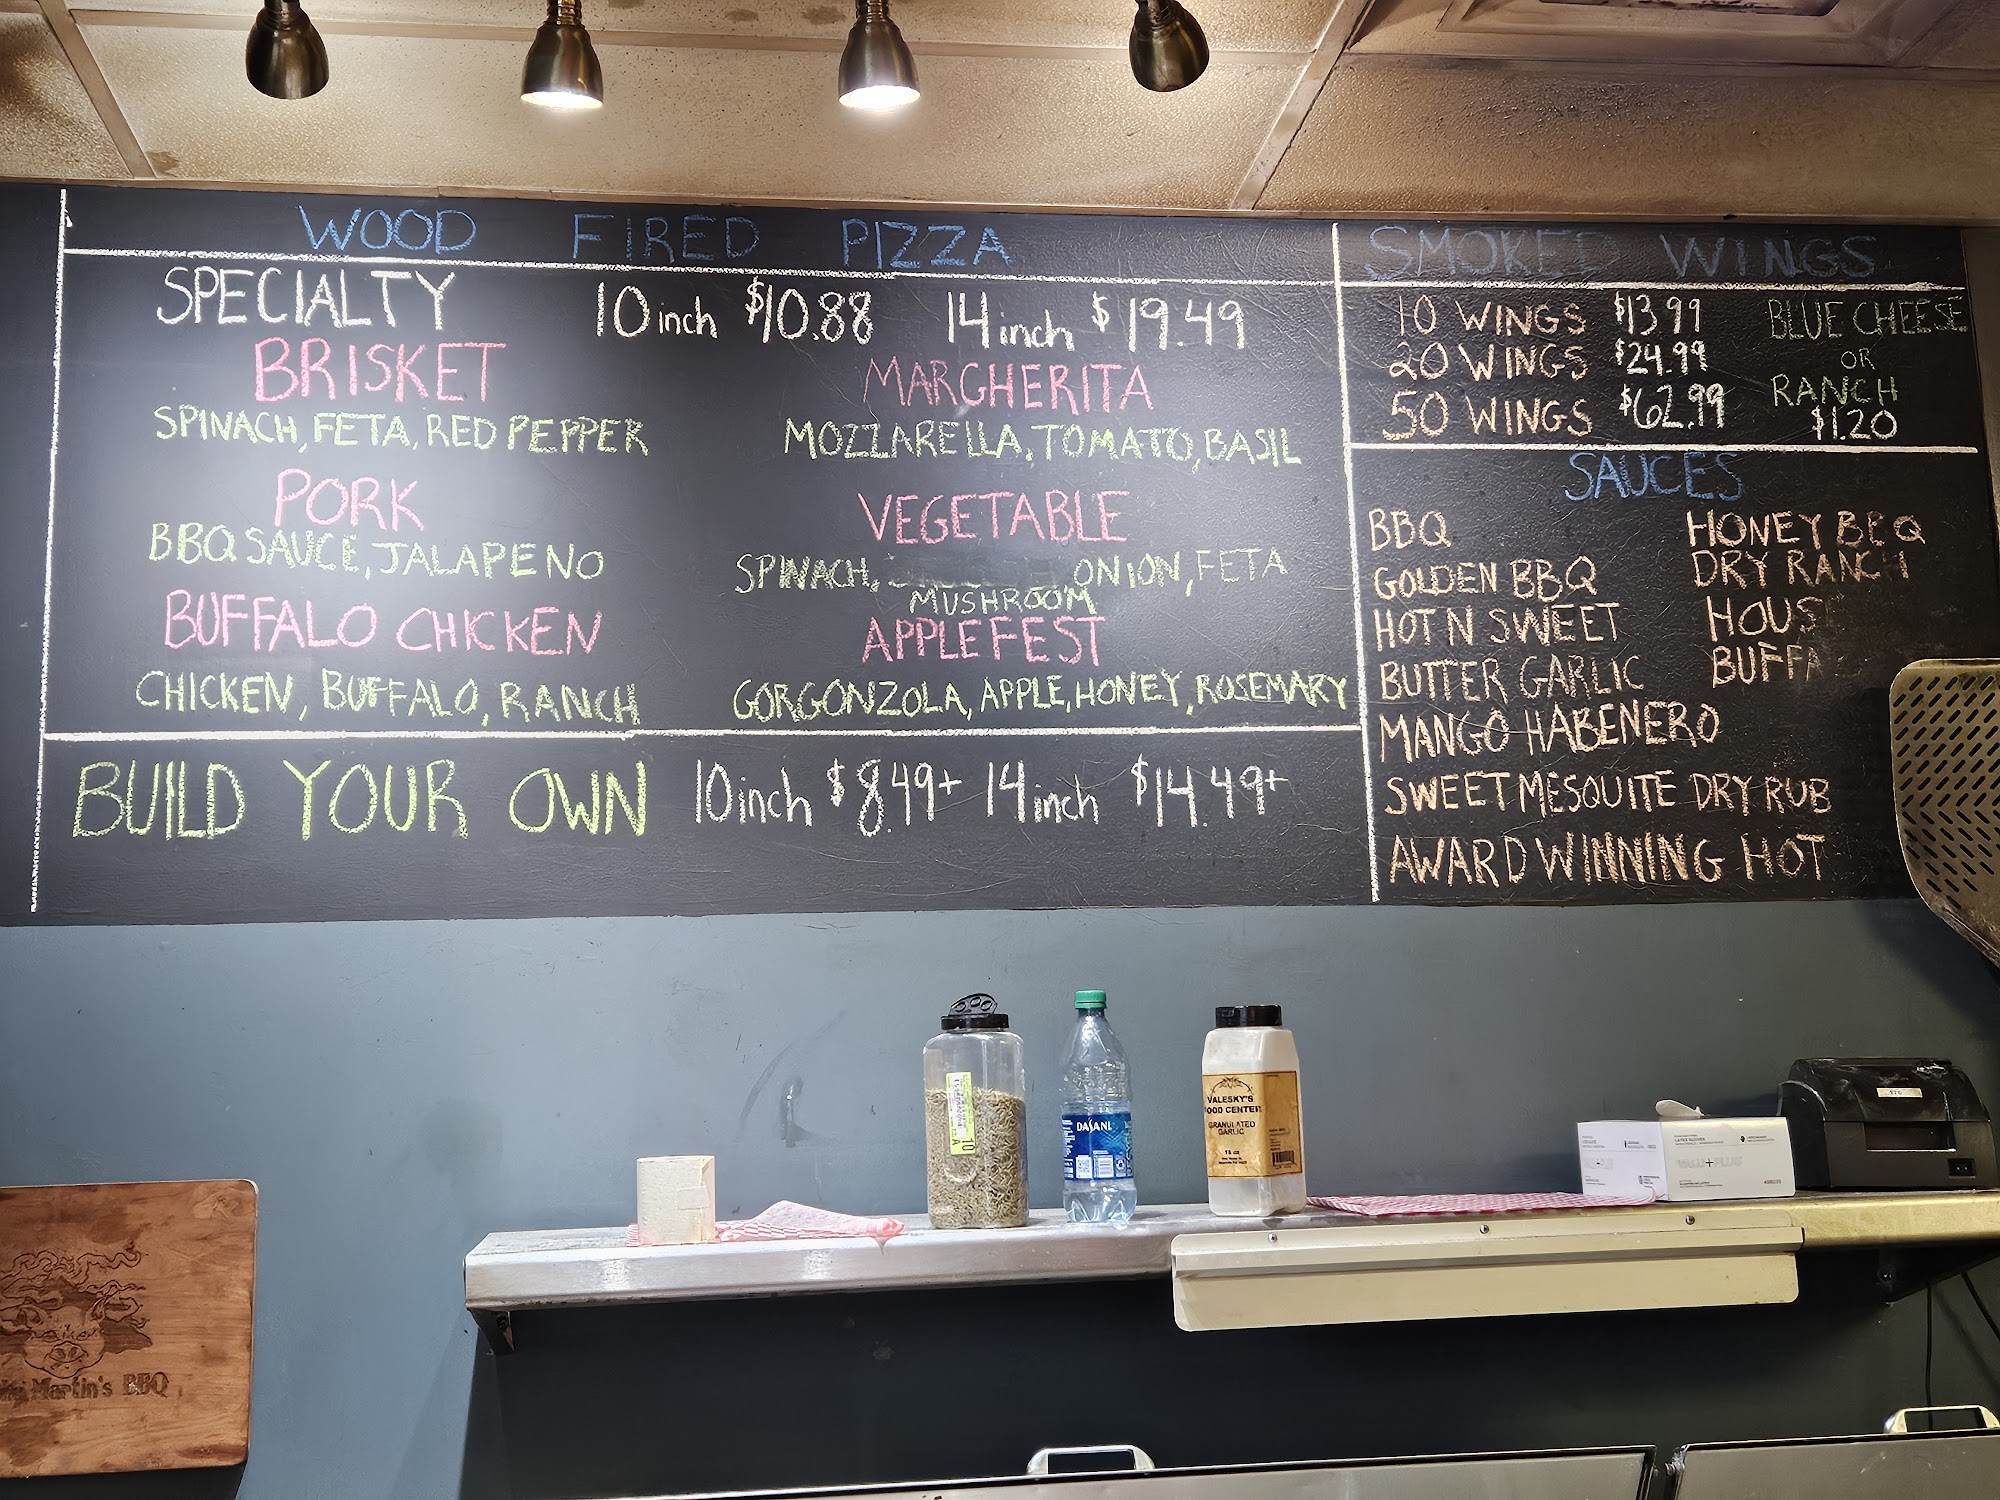 WOOD FIRED PIZZA
SPECIALTY 10 inch $10.88 14 inch $19.49
BRISKET
SPINACH, FETA, RED PEPPER
PORK
BBQ SAUCE, JALAPENO
BUFFALO CHICKEN
CHICKEN, BUFFALO, RANCH
MARGHERITA
MOZZARELLA, TOMATO, BASIL
VEGETABLE
SPINACH, ONION, FETA
MUSHROOM
APPLEFEST
GORGONZOLA, APPLE, HONEY, ROSEMARY
BUILD YOUR OWN 10inch $8.49+ 14inch $14.49+
SMOKED WINGS
10 WINGS $13.99
20 WINGS $24.99
50 WINGS $62.99
BLUE CHEESE
OR
RANCH
$1.20
SAUCES
BBQ
GOLDEN BBQ
HOT N SWEET
BUTTER GARLIC
MANGO HABENERO
SWEET MESQUITE DRY RUB
AWARD WINNING HOT
HONEY BBQ
DRY RANCH
HOUS
BUFFA
DASANI
VALESKY'S
FOOD CENTER
GRANULATED
GARLIC
18 oz
Martin's BBQ